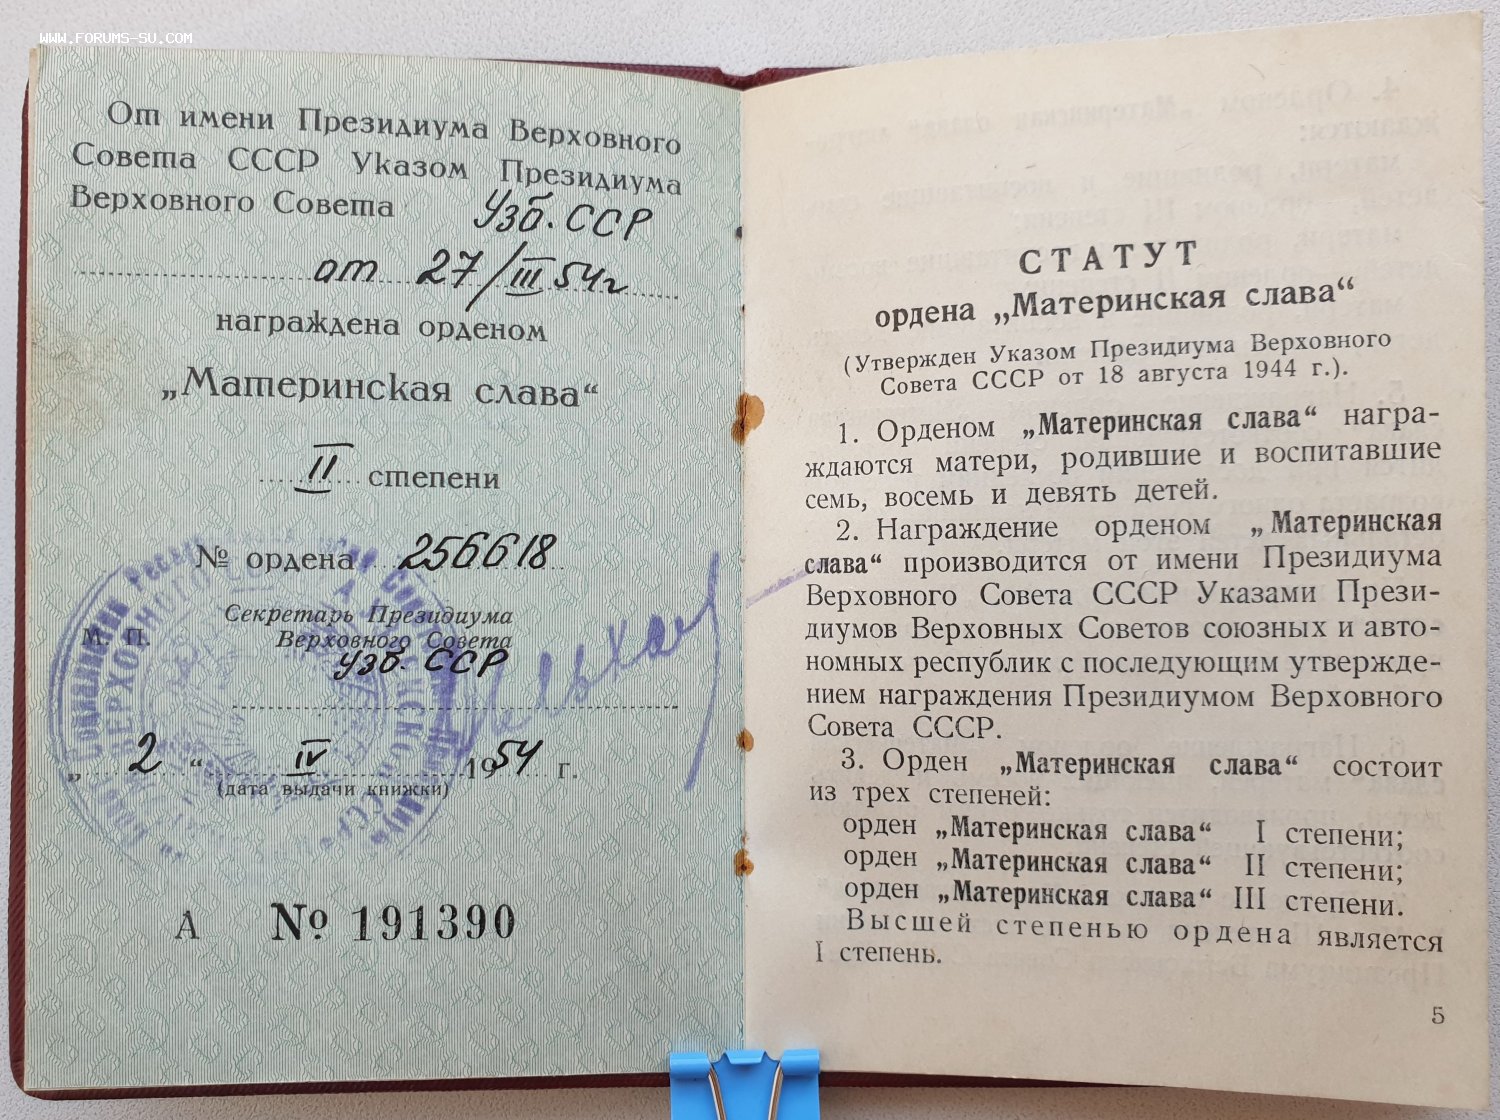 WWW.FORUMS-SU.COM
От имени Президиума Верховного
Совета СССР Указом Президиума
Верховного Совета Узб. ССР
от 27/III 54г
награждена орденом
„Материнская слава“
II степени
№ ордена 256618
Секретарь Президиума
М. П. Верховного Совета
Узб. ССР
„ 2 “ IV 1954 г.
(дата выдачи книжки)
А № 191390
СТАТУТ
ордена „Материнская слава“
(Утвержден Указом Президиума Верховного
Совета СССР от 18 августа 1944 г.).
1. Орденом „Материнская слава“ награ-
ждаются матери, родившие и воспитавшие
семь, восемь и девять детей.
2. Награждение орденом „Материнская
слава“ производится от имени Президиума
Верховного Совета СССР Указами Прези-
диумов Верховных Советов союзных и авто-
номных республик с последующим утвержде-
нием награждения Президиумом Верховного
Совета СССР.
3. Орден „Материнская слава“ состоит
из трех степеней:
орден „Материнская слава“ I степени;
орден „Материнская слава“ II степени;
орден „Материнская слава“ III степени.
Высшей степенью ордена является
I степень.
5